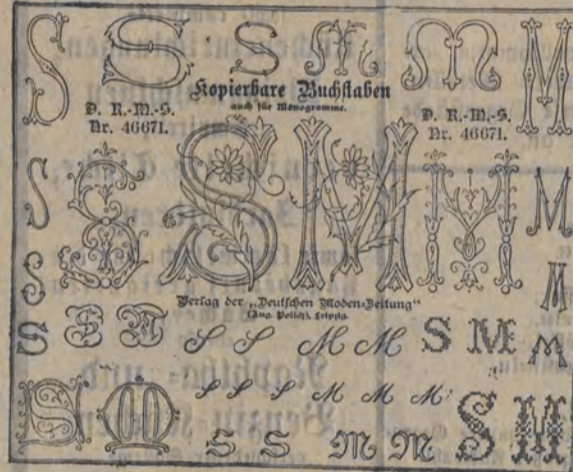 S S S M M M
Kopierbare Buchstaben
auch für Monogramme.
D. R.-M.-S.
Nr. 46671.
D. R.-M.-S.
Nr. 46671.
S S S M M M
Verlag der „Deutschen Moden-Zeitung“
(Aug. Polich), Leipzig.
S
M
S S M S S M M S M M
S M S S S M M M
S S M M S M